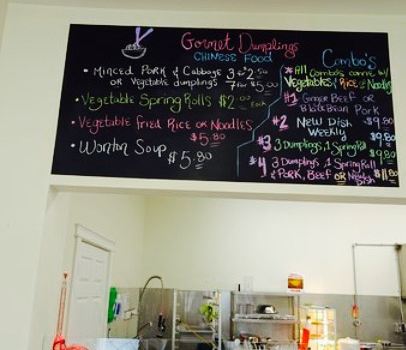 Gormet Dumplings
CHINESE FOOD
• MINCED PORK & Cabbage 3 for $2.50
OR Vegetable dumplings 7 for $5.00
• Vegetable Spring Rolls $2.00 Each
• Vegetable fried Rice or Noodles
$5.80
• Wonton Soup $5.80
Combo's
*All Combo's come w/
Vegetables & Rice or Noodles
#1 Ginger Beef or
Black Bean Pork
$9.80
#2 New Dish
Weekly
$9.80
#3 3 Dumplings, 1 Spring Roll
$9.80
#4 3 Dumplings, 1 Spring Roll
& Pork, Beef OR New Dish $11.80